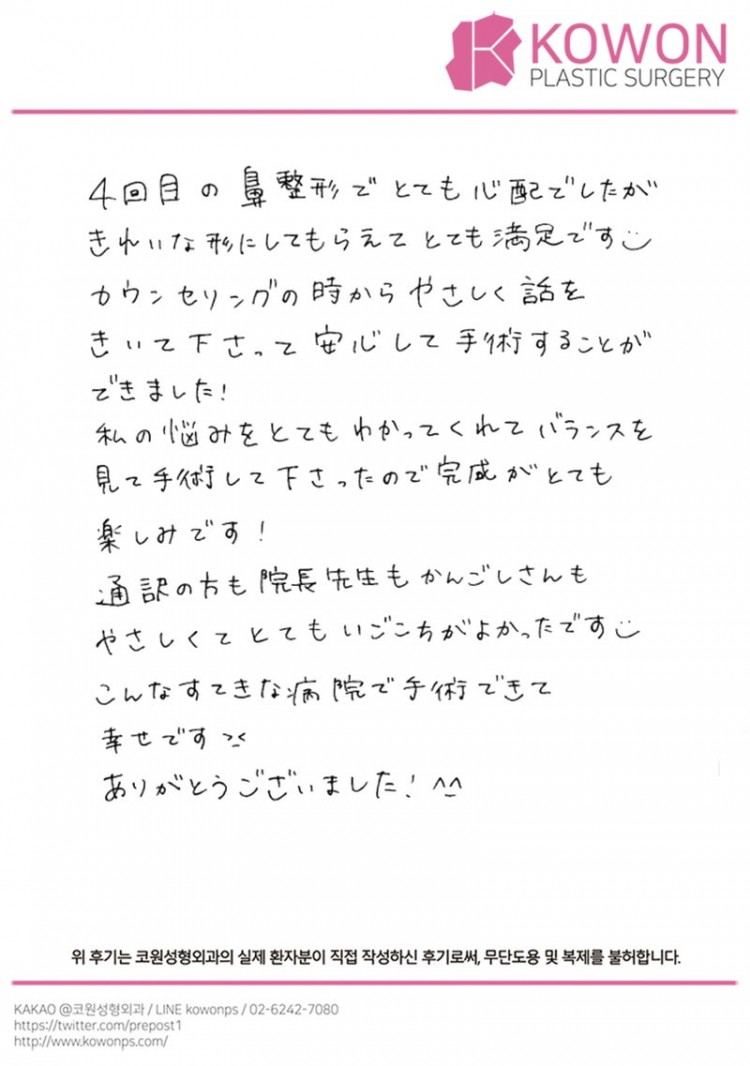 KOWON
PLASTIC SURGERY
4回目の鼻整形でとても心配でしたが
きれいな形にしてもらえてとても満足です
カウンセリングの時からやさしく話を
きいて下さって安心して手術することが
できました!
私の悩みをとてもわかってくれてバランスを
見て手術して下さったので完成がとても
楽しみです!
通訳の方も院長先生もかんごしさんも
やさしくてとてもいごこちがよかったです
こんなすてきな病院で手術できて
幸せです >.<
ありがとうございました! ^_^
위 후기는 코원성형외과의 실제 환자분이 직접 작성하신 후기로써, 무단도용 및 복제를 불허합니다.
KAKAO @코원성형외과 / LINE kowonps / 02-6242-7080
https://twitter.com/prepost1
http://www.kowonps.com/